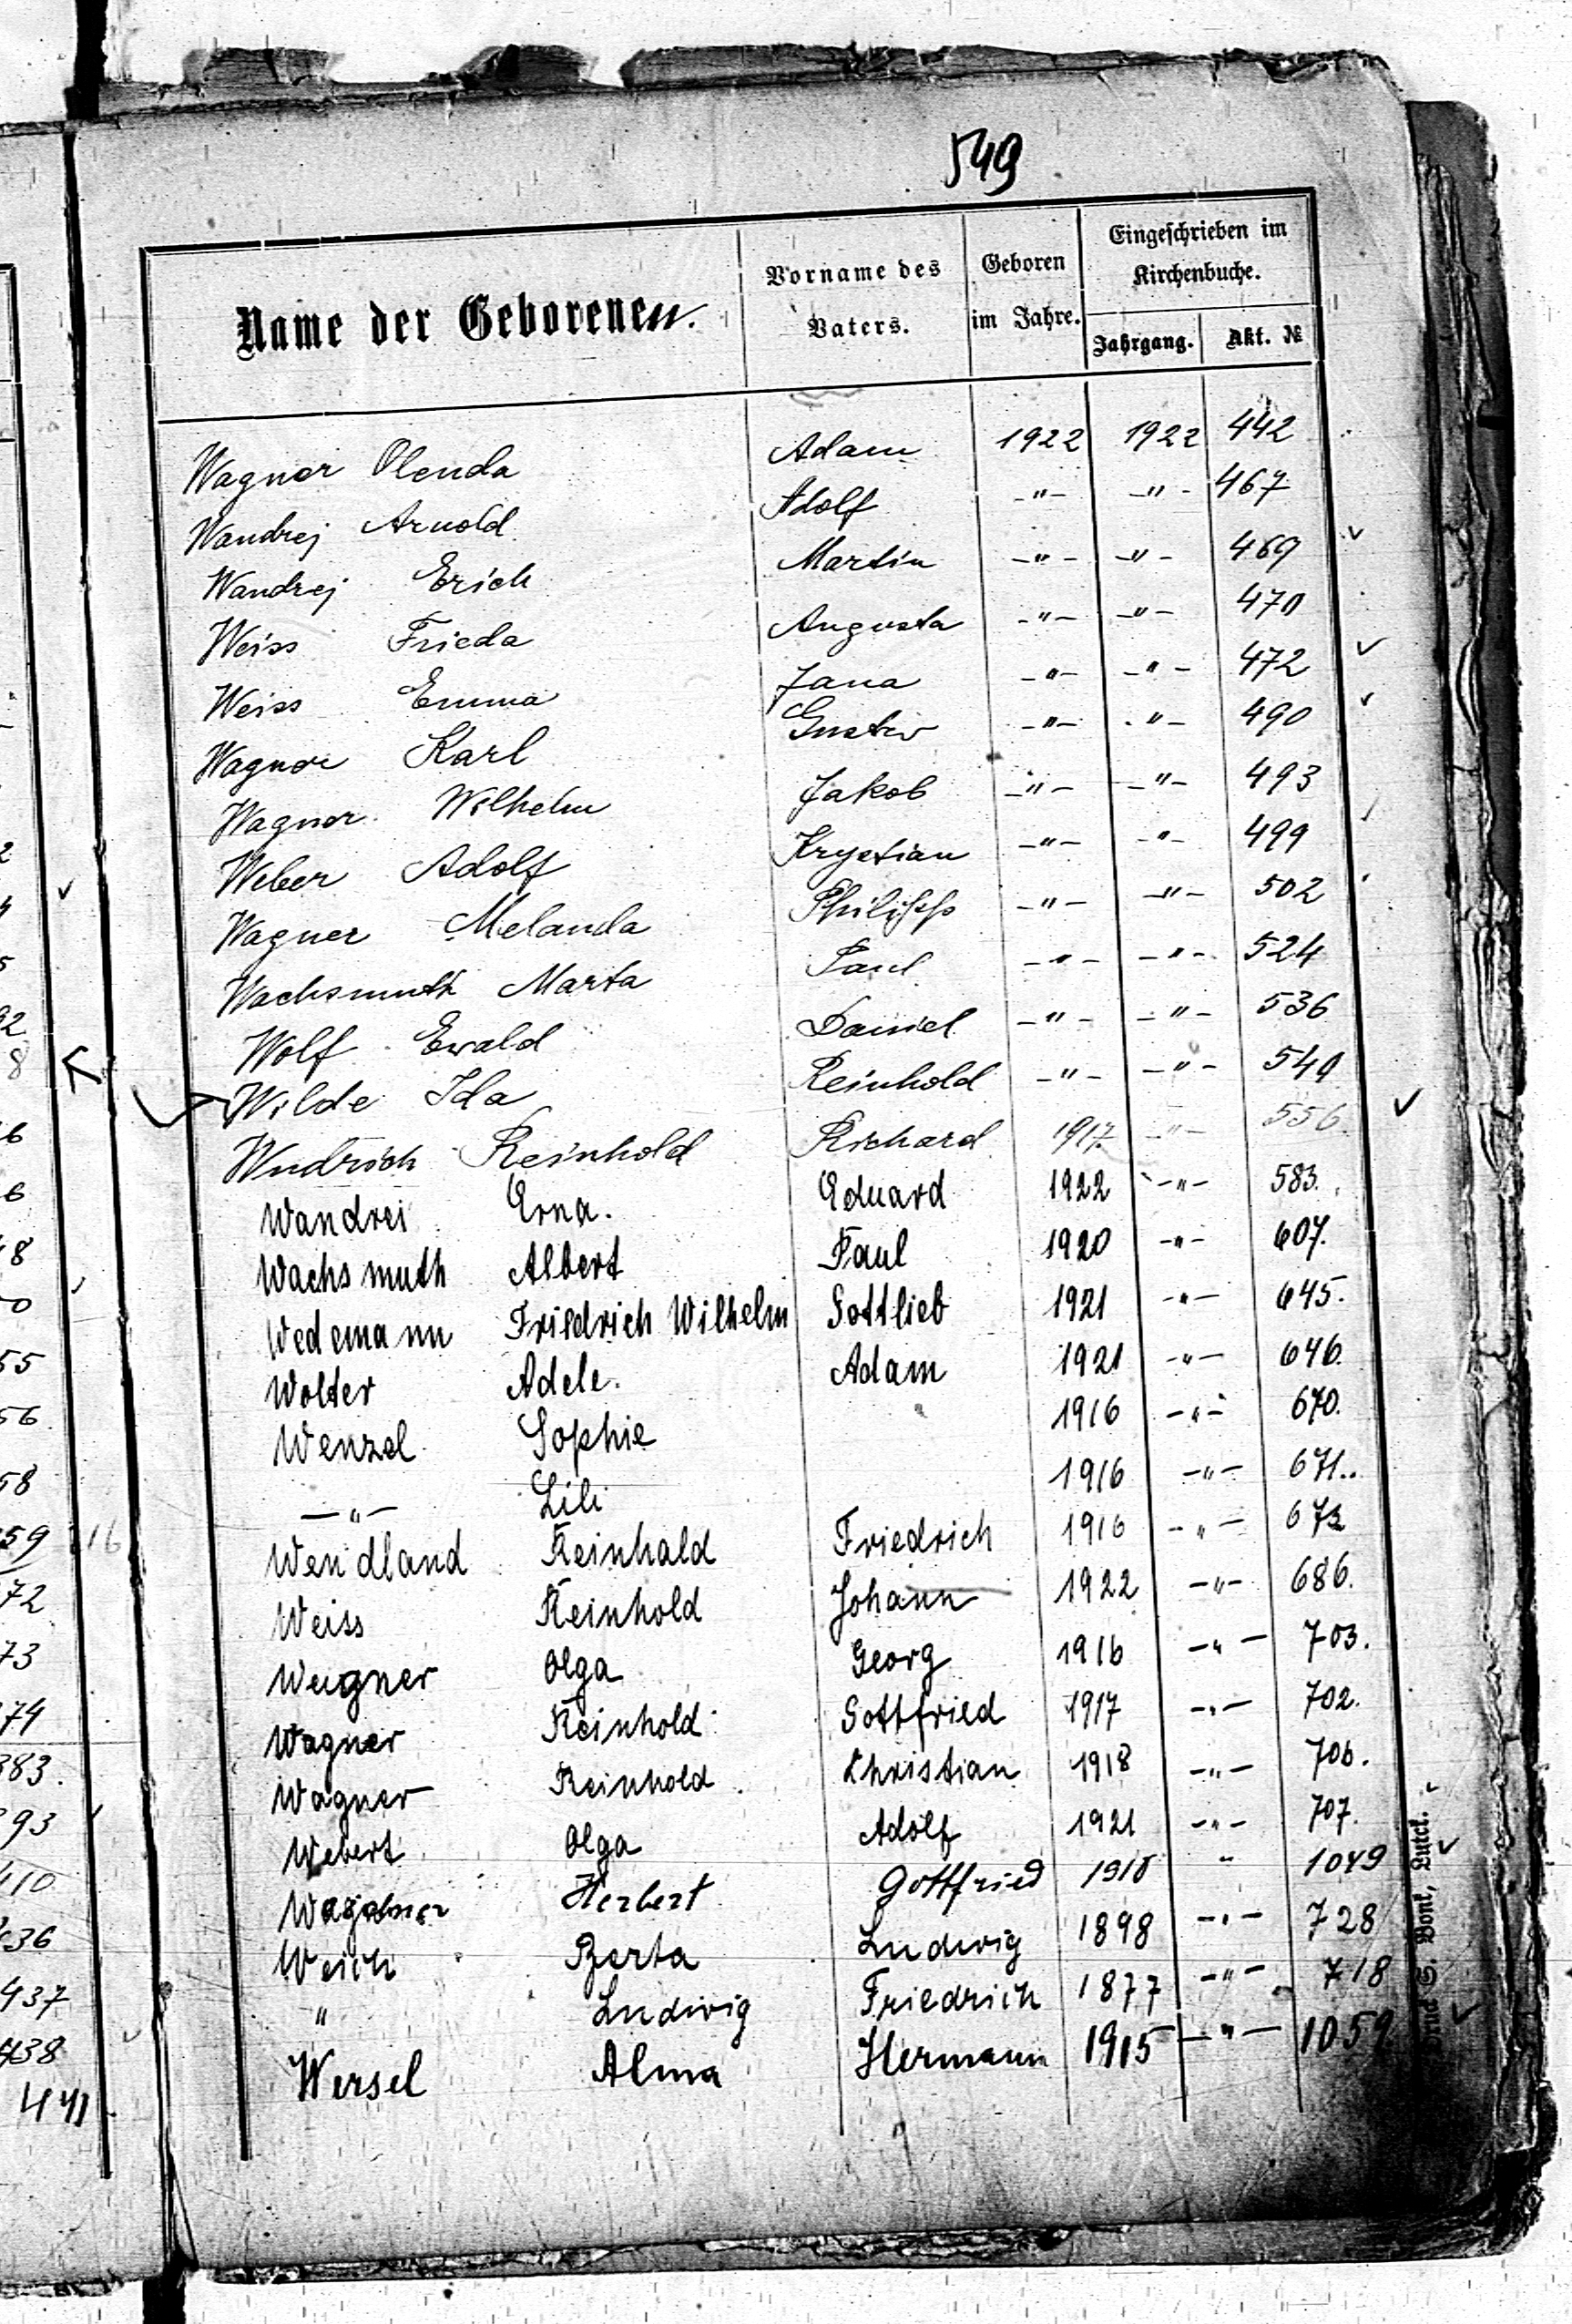 549
Name der Geborenen.
Vorname des Vaters.
Geboren im Jahre.
Eingeschrieben im Kirchenbuche.
Jahrgang.
Akt. №
Wagner Olenda Adam 1922 1922 442
Wandrej Arnold Adolf -"- -"- 467
Wandrej Erich Martin -"- -"- 469
Weiss Frieda Augusta -"- -"- 470
Weiss Emma Jana -"- -"- 472
Wagner Karl Gustav -"- -"- 490
Wagner Wilhelm Jakob -"- -"- 493
Weber Adolf Krystian -"- -"- 499
Wagner Melanda Philipp -"- -"- 502
Wachsmuth Marta Paul -"- -"- 524
Wolf Ewald Daniel -"- -"- 536
Wilde Ida Reinhold -"- -"- 549
Wudrich Reinhold Richard 1917 -"- 556.
Wandrei Erna. Eduard 1922 -"- 583.
Wachsmuth Albert Paul 1920 -"- 607.
Wedemann Friedrich Wilhelm Gottlieb 1921 -"- 645.
Wolter Adele. Adam 1921 -"- 646.
Wenzel Sophie 1916 -"- 670.
-"- Lili 1916 -"- 671..
Wendland Reinhald Friedrich 1916 -"- 673
Weiss Reinhold Johann 1922 -"- 686.
Weigner Olga Georg 1916 -"- 703.
Wagner Reinhold Gottfried 1917 -"- 702.
Wagner Reinhold Christian 1918 -"- 706.
Webert Olga Adolf 1921 -"- 707.
Herbert Gottfried 1918 " 1049
Weich Berta Ludwig 1898 -"- 728
" Ludwig Friedrich 1877 -"- 718
Wersel Alma Hermann 1915 -"- 1059
55
56.
58
59
72
73
74
383.
93
410
436
437
438
441